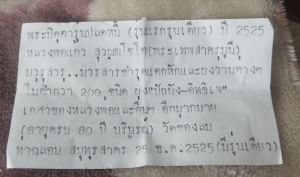 พระปิดตารุ่นปลดหนี้ (รุ่นแรกรุ่นเดียว) ปี 2525
หลวงพ่อแกว สุวณฺณโชโต(พระเทพสาครมุนี)
มวรสาร..มวรสารชำรุดแตกหักและยงวานต่างๆ
ไม่ต่ำกว่า 200 ชนิด ยุง"ปัถมัง-อิทธิเจ"
เกศาของหลวงพ่อและอื่นๆ อีกมากมาย
(อายุครบ 80 ปี บริบูรณ์) วัดช่องลม
ท่าฉลอม สมุทรสาคร 25 ธ.ค.2525(มีรุ่นเดียว)